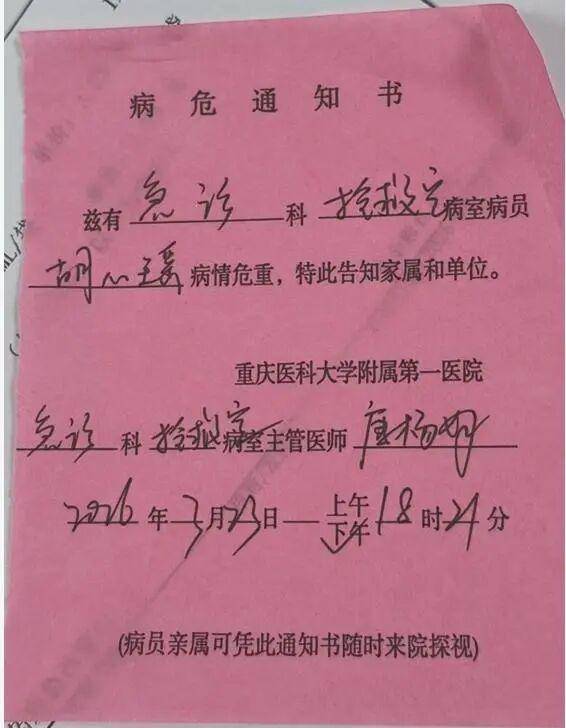 病危通知书
兹有急诊科抢救室病室病员
胡心瑗病情危重，特此告知家属和单位。
重庆医科大学附属第一医院
急诊科抢救室病室主管医师
2026年3月23日上午
下午18时21分
(病员亲属可凭此通知书随时来院探视)